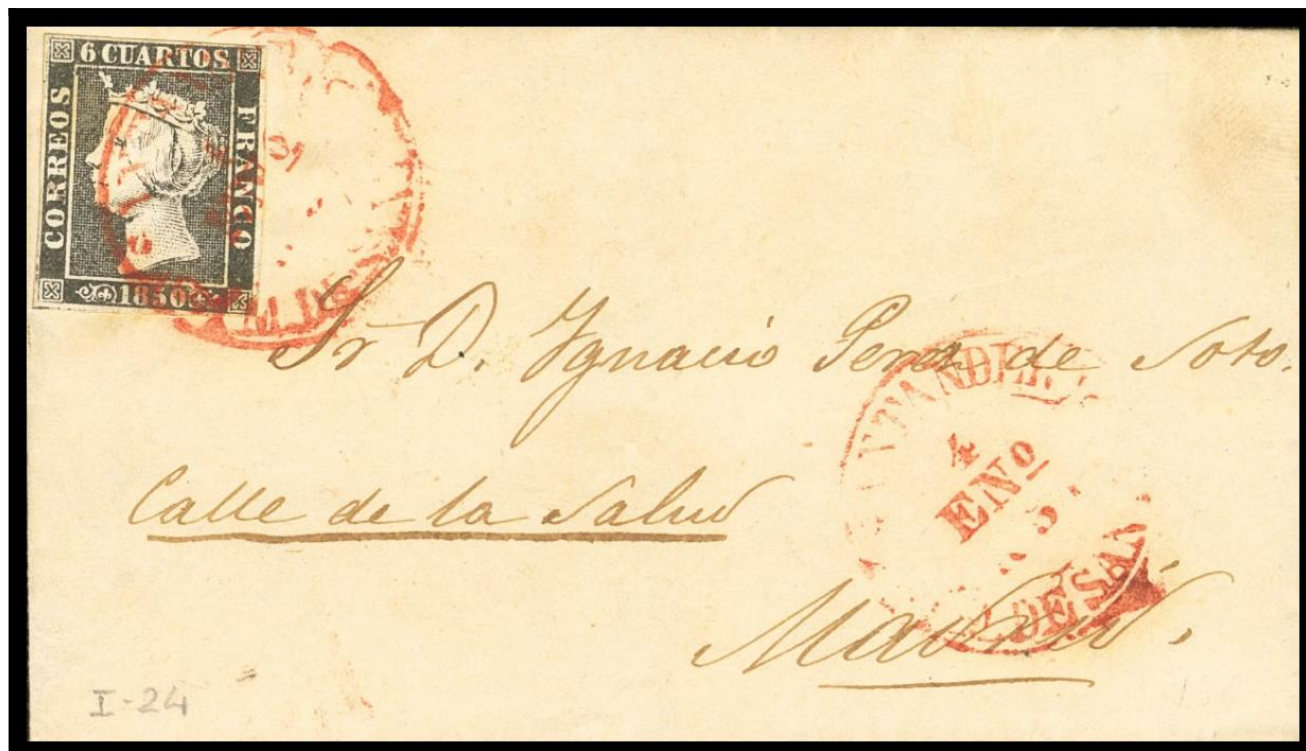 6 CUARTOS
CORREOS
FRANCO
1850
Sr D. Ygnacio Perez de Soto.
Calle de la Salud
4
ENº
DE SAN
Madrid.
I-24